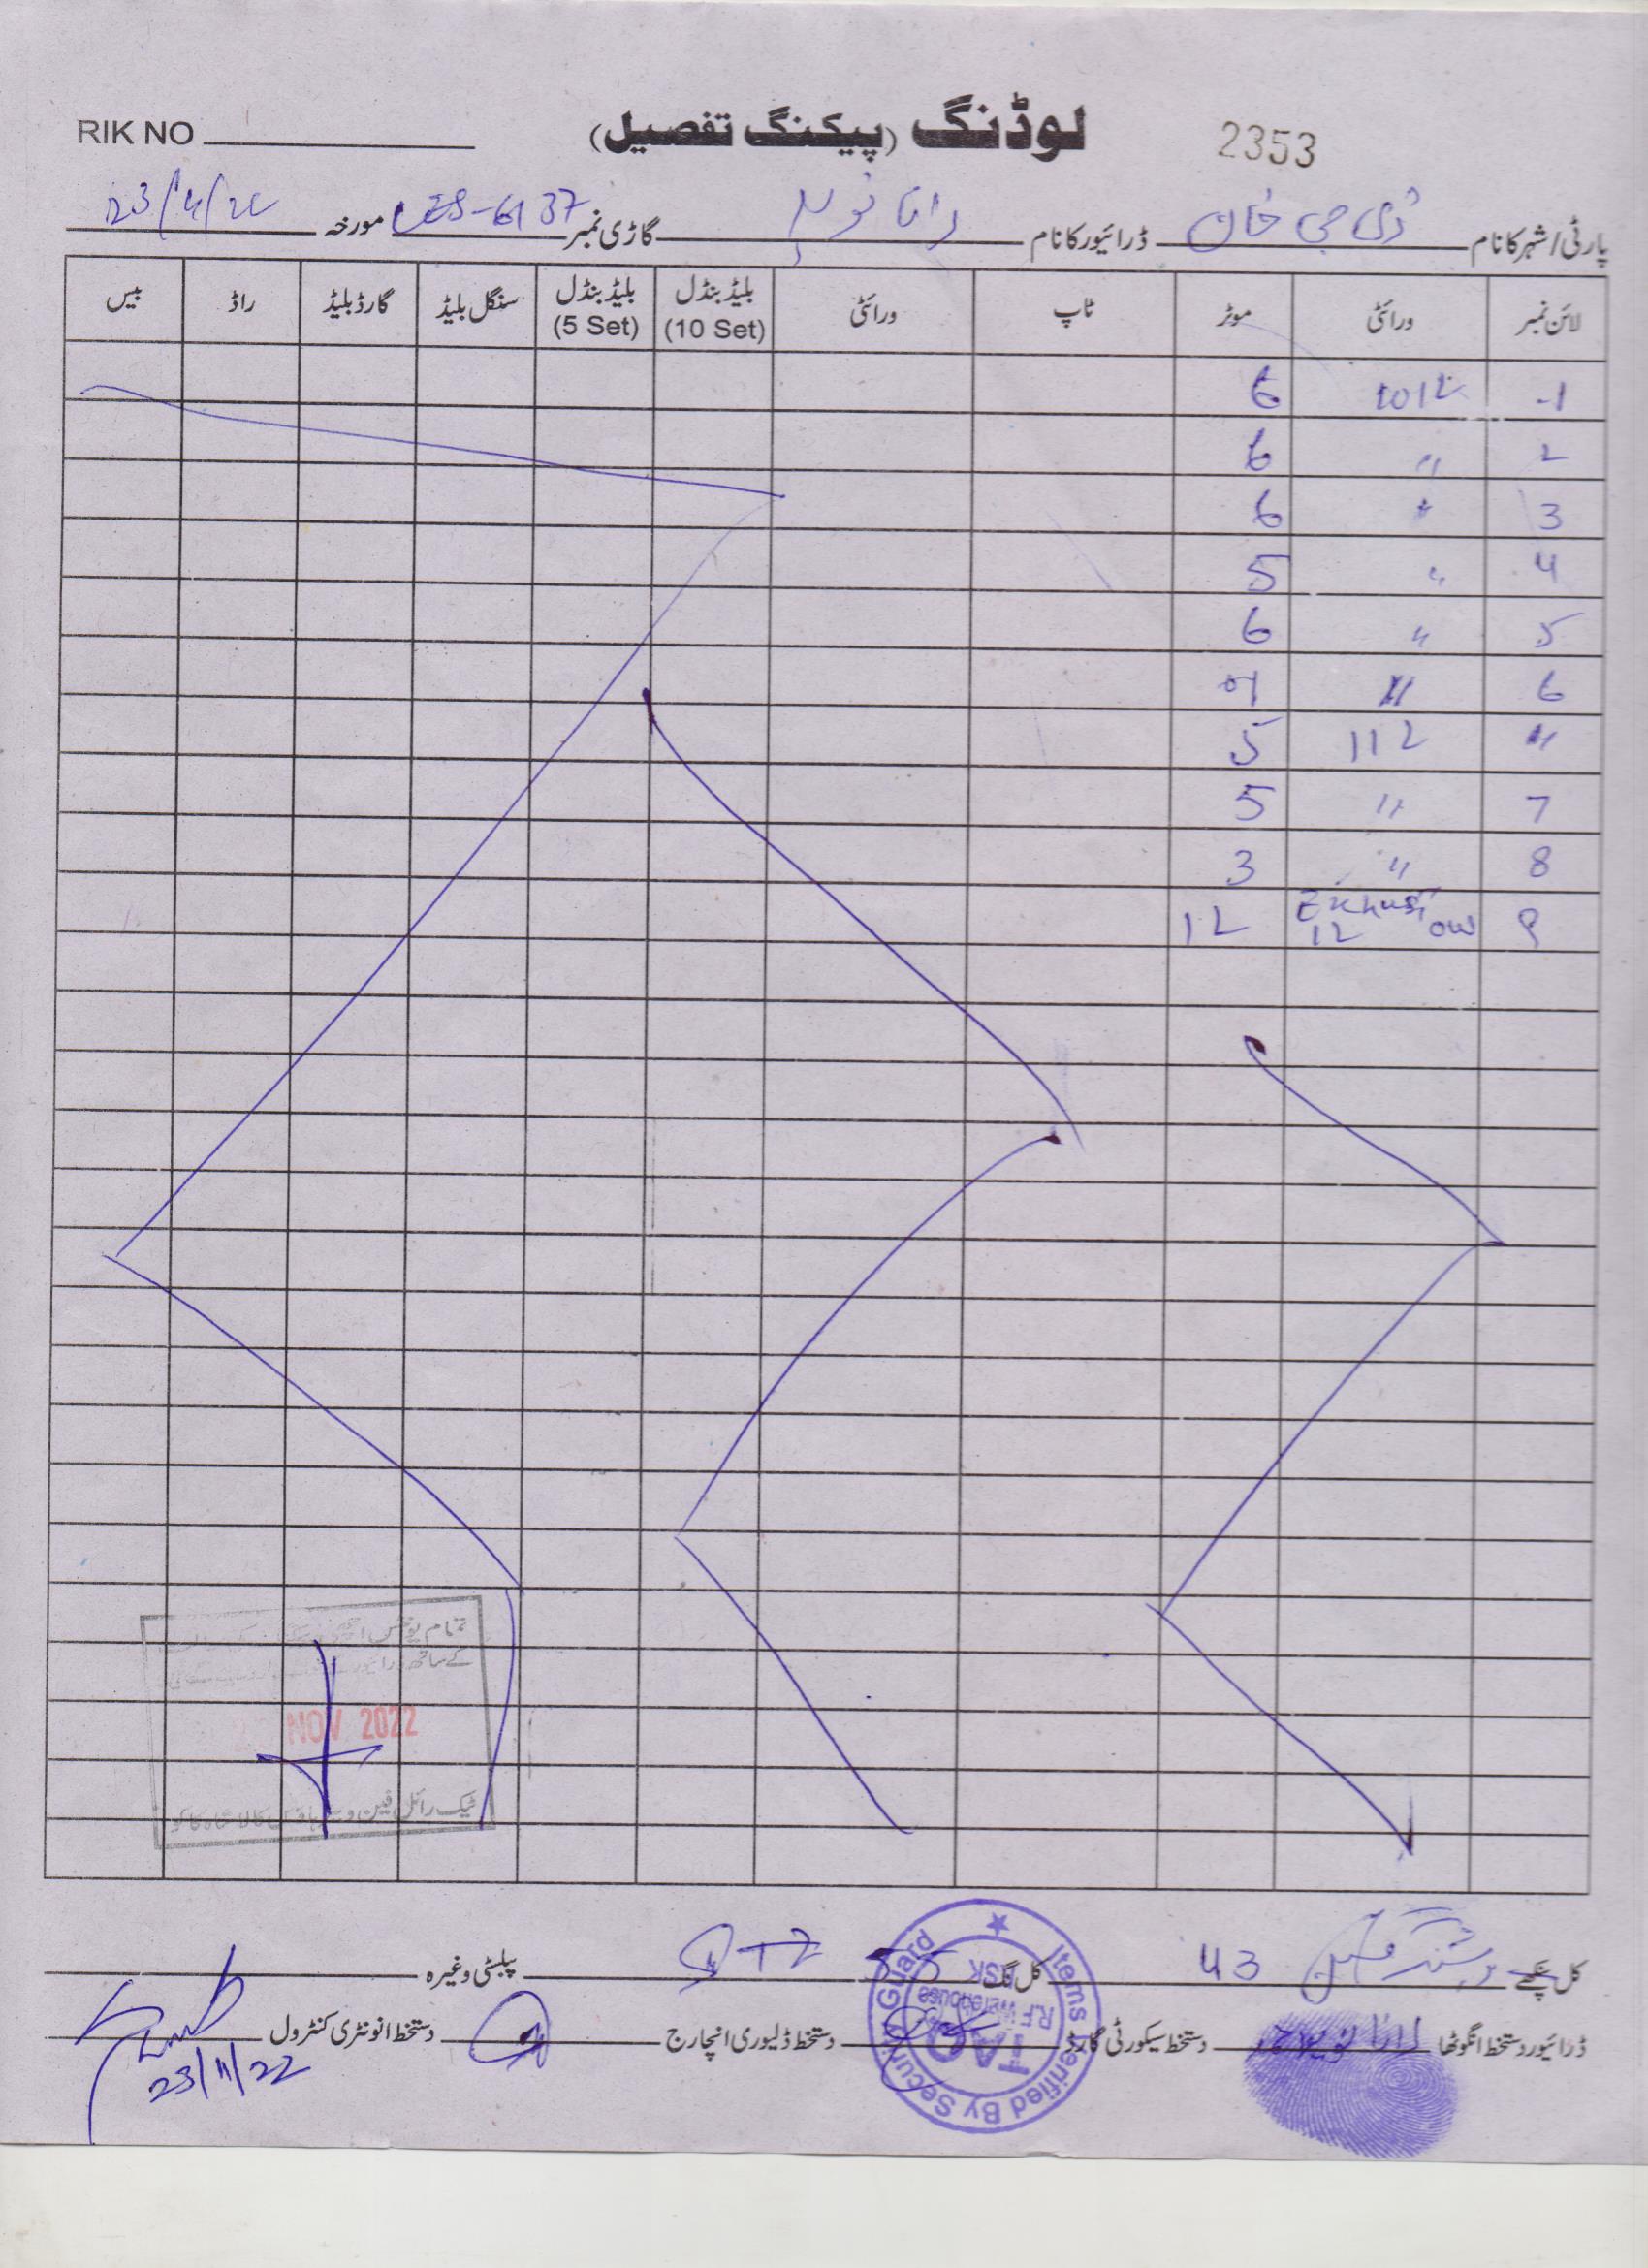 RIK NO لوڈنگ (پیکنگ تفصیل) 2353
پارٹی/شہر کا نام ڈی جی خان ڈرائیور کا نام رانا نوید گاڑی نمبر LES-6137 مورخہ
لائن نمبر ورائٹی موٹر ٹاپ ورائٹی بلیڈ بنڈل (10 Set) بلیڈ بنڈل (5 Set) سنگل بلیڈ گارڈ بلیڈ راڈ بیس
-1 1012 6
2 〃 6
3 〃 6
4 〃 5
5 〃 6
6 〃
〃 112 5
7 〃 5
8 〃 3
9 12 12
NOV 2022
کل پنکھے 43 کل نگ 55 پبلسٹی وغیرہ
ڈرائیور دستخط انگوٹھا دستخط سیکورٹی گارڈ دستخط ڈلیوری انچارج دستخط انونٹری کنٹرول
23/11/22
Items Verified By Security Guard
R.F Warehouse
KSK